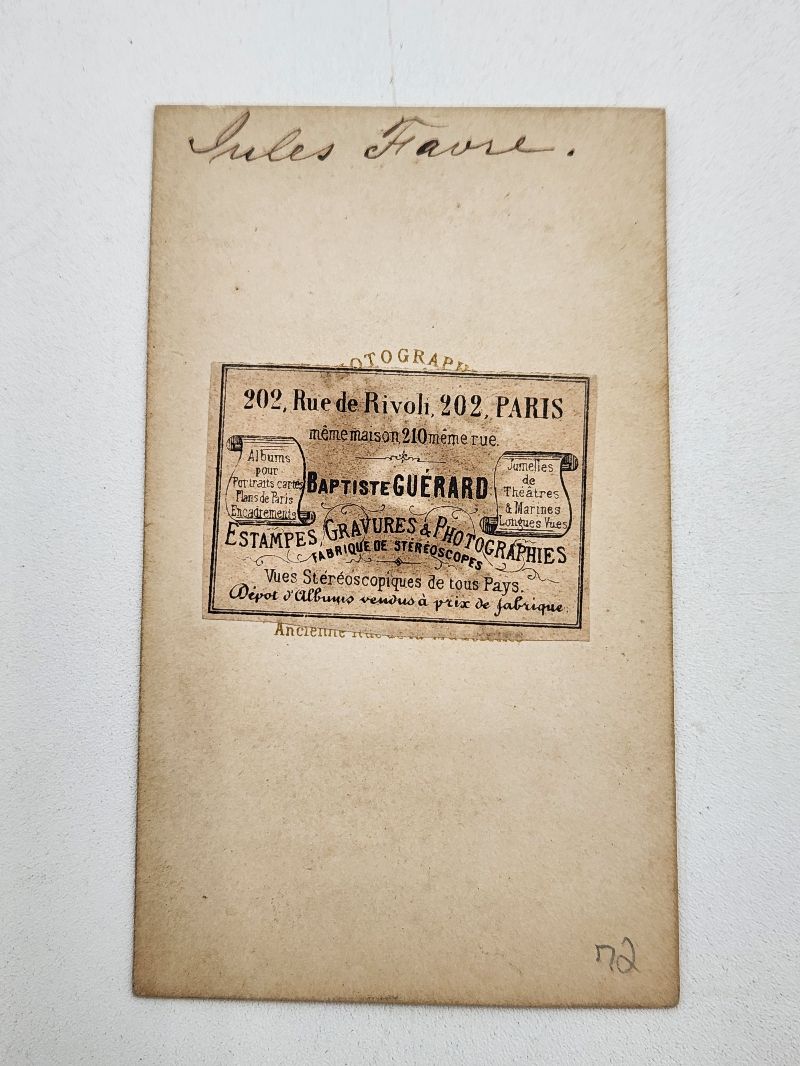 Jules Favre.
PHOTOGRAPH
202, Rue de Rivoli, 202, PARIS
même maison 210 même rue.
Albums
pour
Portraits cartes
Plans de Paris
Encadrements
BAPTISTE GUÉRARD
Jumelles
de
Théâtres
& Marines
Longues Vues
ESTAMPES, GRAVURES & PHOTOGRAPHIES
FABRIQUE DE STÉRÉOSCOPES
Vues Stéréoscopiques de tous Pays.
Dépot d'Albums vendus à prix de fabrique.
Ancienne Rue de la
72